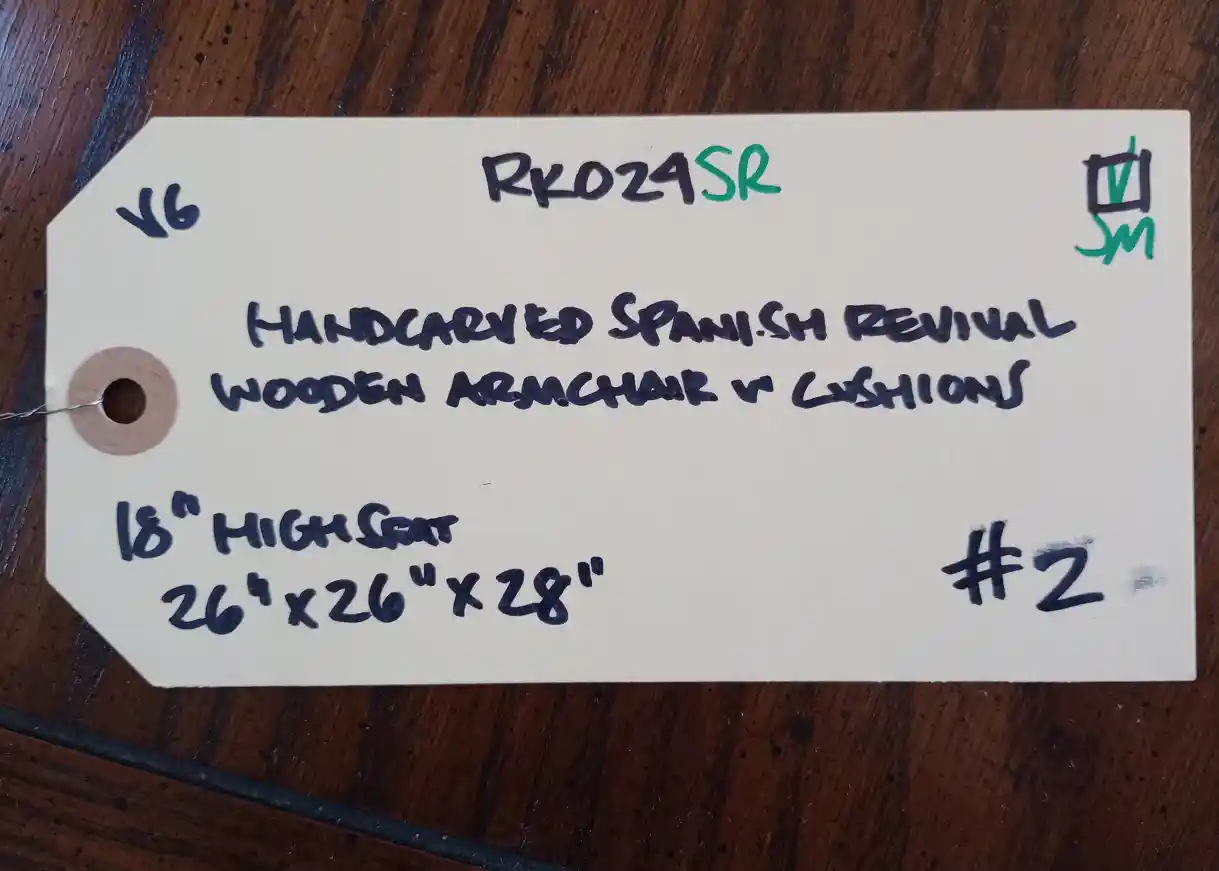 V6
RK024SR
V
SM
HANDCARVED SPANISH REVIVAL
WOODEN ARMCHAIR W CUSHIONS
18" HIGH SEAT
26" x 26" x 28"
#2